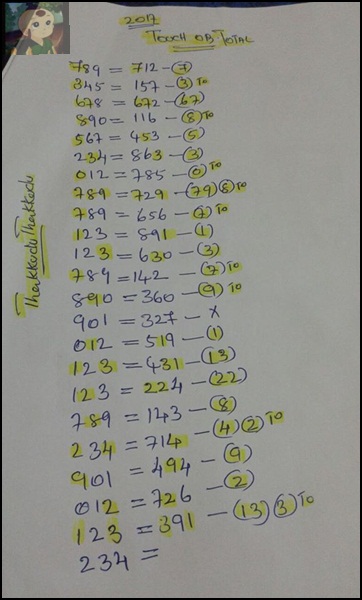 2017
Touch OR Total
789 = 712 - 7
345 = 157 - 3 To
678 = 672 - 67
890 = 116 - 8 To
567 = 453 - 5
234 = 863 - 3
012 = 785 - 0 To
789 = 729 - 79 8 To
789 = 656 - 7 To
123 = 891 - 1
123 = 630 - 3
789 = 142 - 7 To
890 = 360 - 9 To
901 = 327 - x
012 = 519 - 1
123 = 431 - 13
123 = 224 - 22
789 = 143 - 8
234 = 714 - 4 2 To
901 = 494 - 9
012 = 726 - 2
123 = 391 - 13 3 To
234 =
Thakkudu Thakkudu